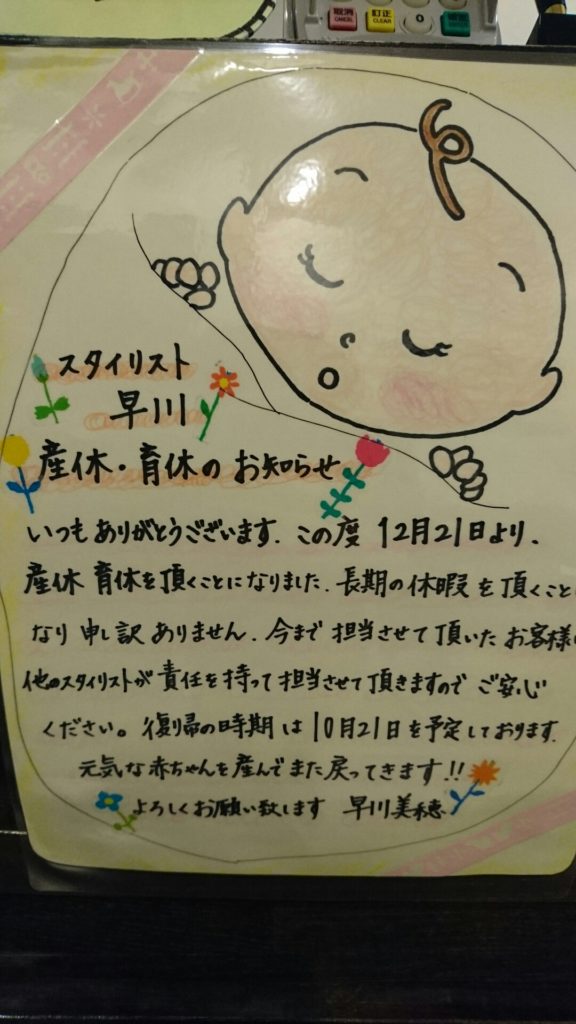 取消
CANCEL
訂正
CLEAR
0
スタイリスト
早川
産休・育休のお知らせ
いつもありがとうございます. この度 12月21日より、
産休 育休を頂くことになりました. 長期の休暇を頂くこと
なり申し訳ありません. 今まで担当させて頂いたお客様
他のスタイリストが責任を持って担当させて頂きますので ご安心
ください。復帰の時期は10月21日を予定しております.
元気な赤ちゃんを産んでまた戻ってきます!!
よろしくお願い致します 早川美穂